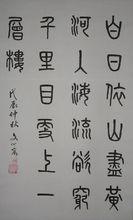 白日依山盡黃
河入海流欲窮
千里目更上一
層樓
仲秋